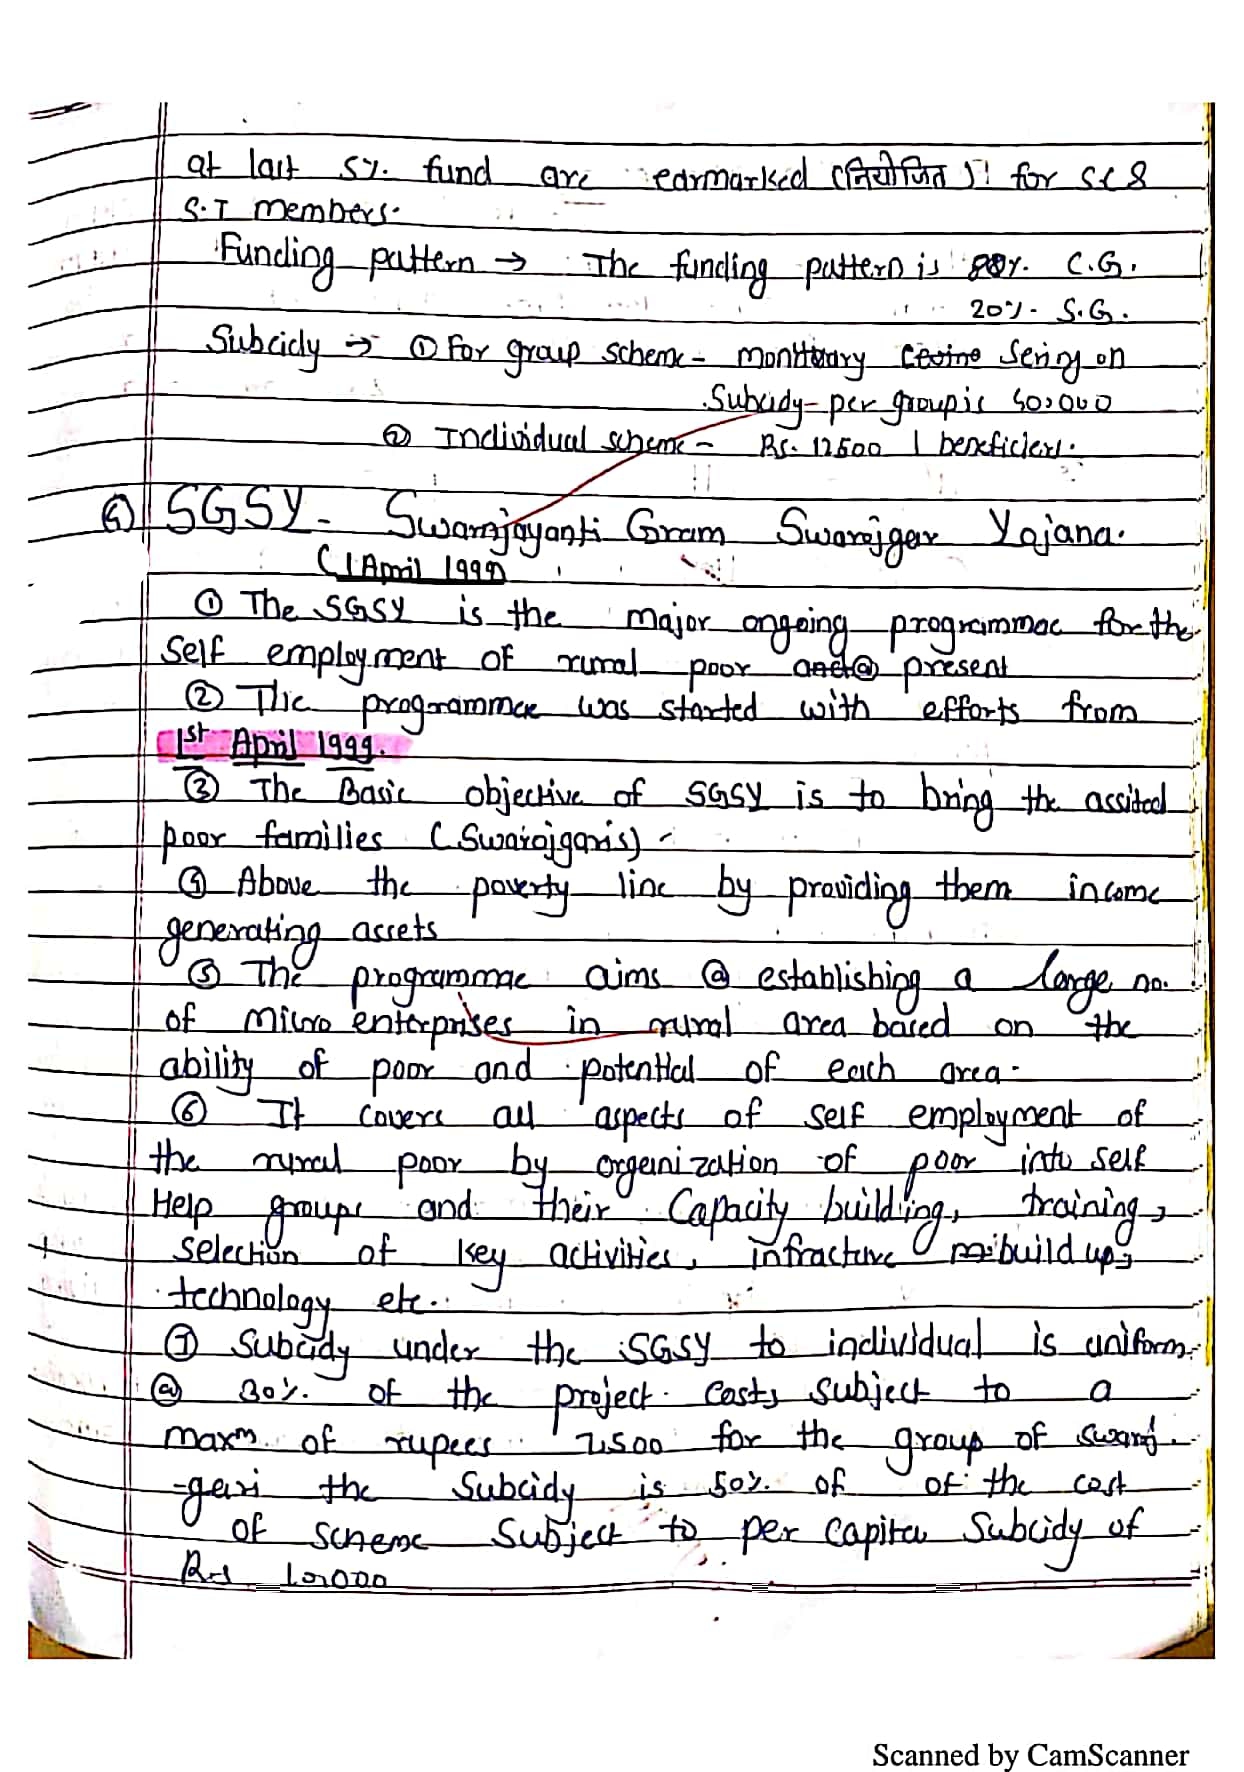 at last 5%. fund are earmarked (नियोजित) for SC &
S.T members.
Funding pattern → The funding pattern is 80%. C.G.
20%. S.G.
Subcidy → ① For group scheme - on
Subcidy - per group is 50,000
② Individual scheme - Rs. 12500 | beneficiers.
⑥ SGSY - Swarnjayanti Gram Swarojgar Yojana.
(1 April 1999)
① The SGSY is the major ongoing programmae for the
self employment of rural poor @ present
② The programmae was started with efforts from
1st April 1999.
③ The Basic objective of SGSY is to bring the assited
poor families (Swarojgaris)
④ Above the poverty line by providing them income
generating assets
⑤ The programmae aims @ establishing a large no.
of micro enterprises in rural area based on the
ability of poor and potential of each area.
⑥ It covers all aspects of self employment of
the rural poor by organization of poor into self
Help groups and their Capacity building, training,
selection of key activities, infracture build up,
technology etc.
⑦ Subcidy under the SGSY to individual is uniform
@ 30%. of the project costs subject to a
maxm. of rupees 7,500 for the group of swaroj
-gari the Subcidy is 50%. of of the cost
of scheme subject to per capita Subcidy of
Rs 10,000
Scanned by CamScanner